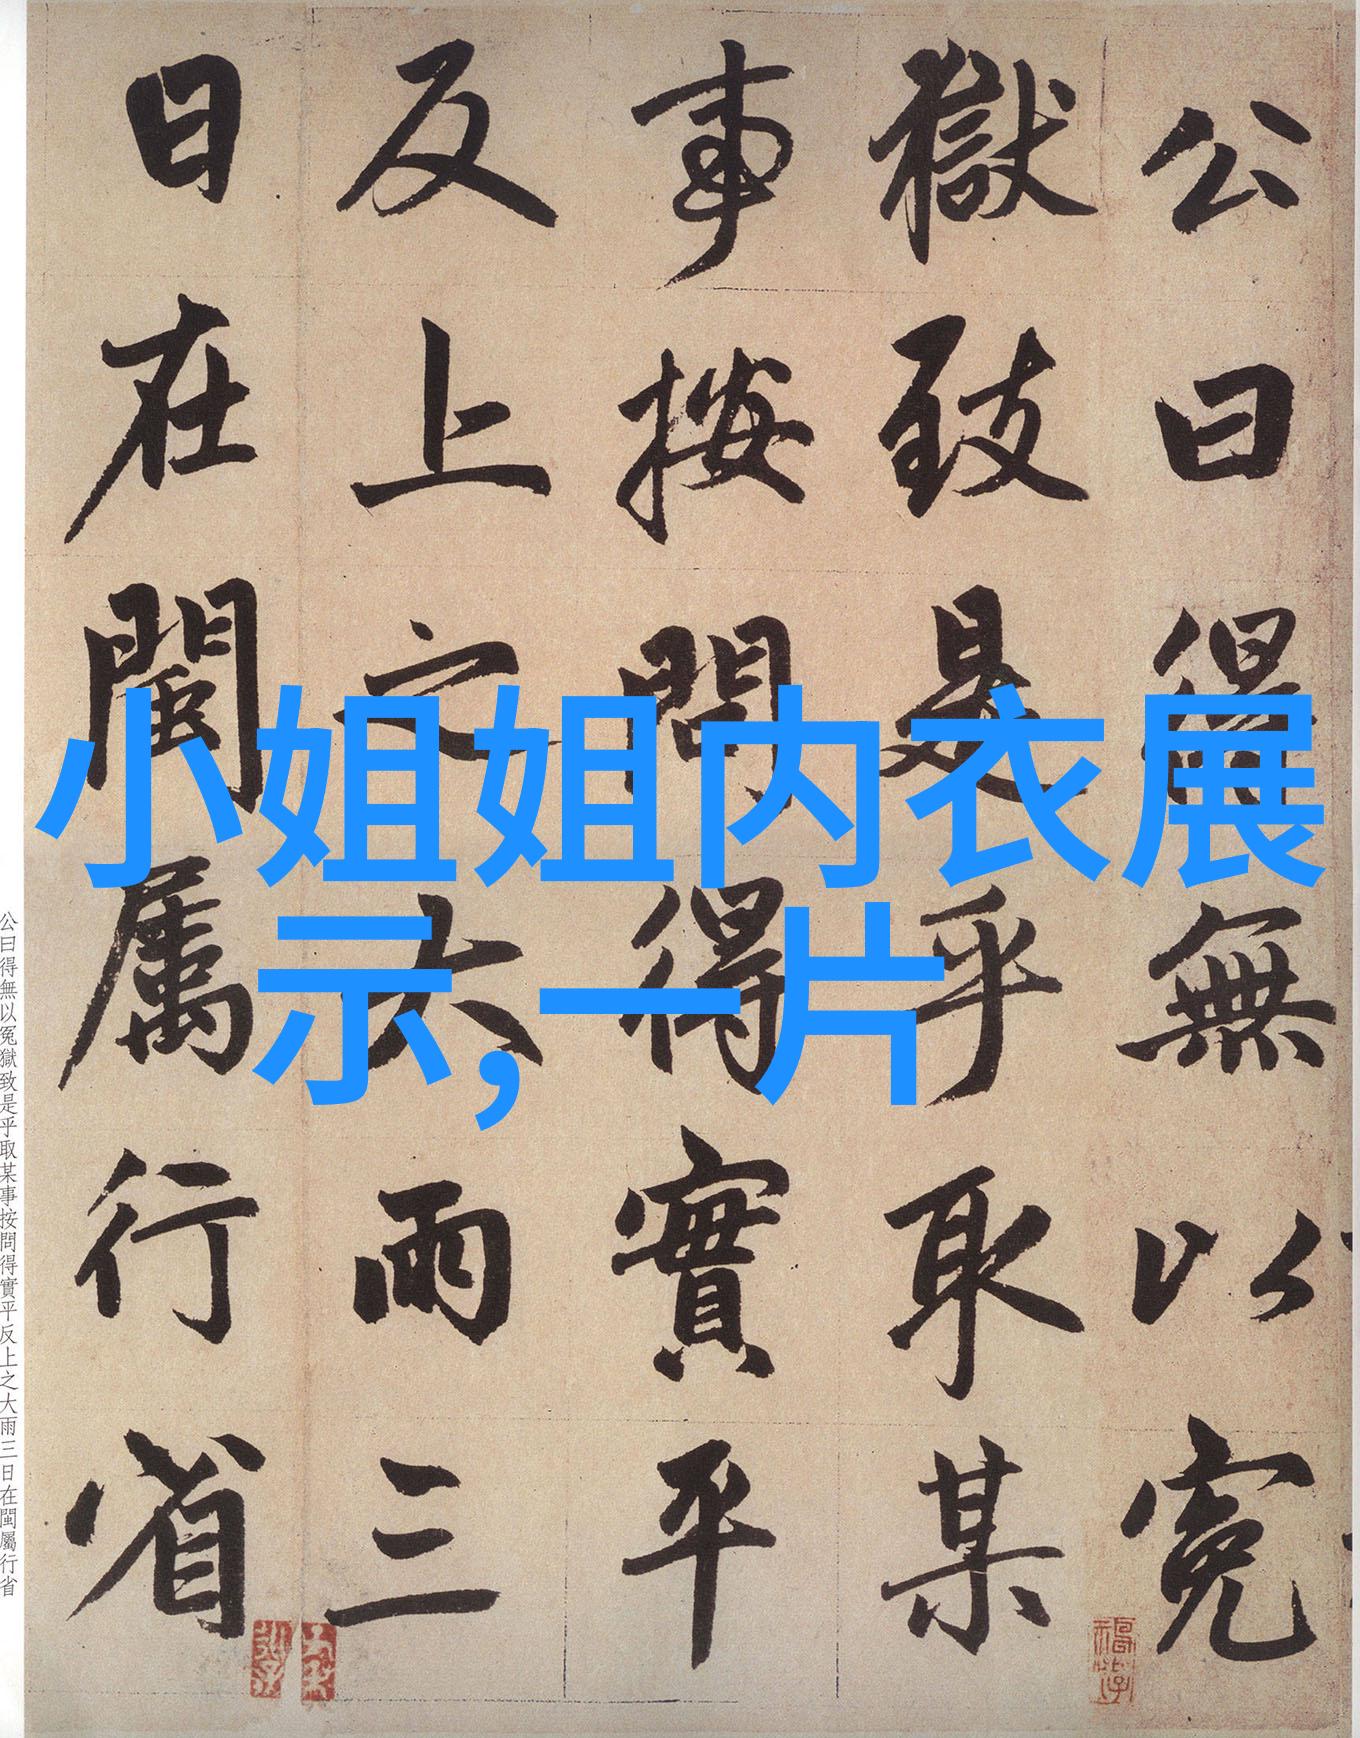 公曰得無以冤
獄致是乎取某
事按問得實平
反上之大雨三
日在閩屬行省
小姐姐内衣展
示,一片
公曰得無以冤獄致是乎取某事按問得實平反上之大雨三日在閩屬行省